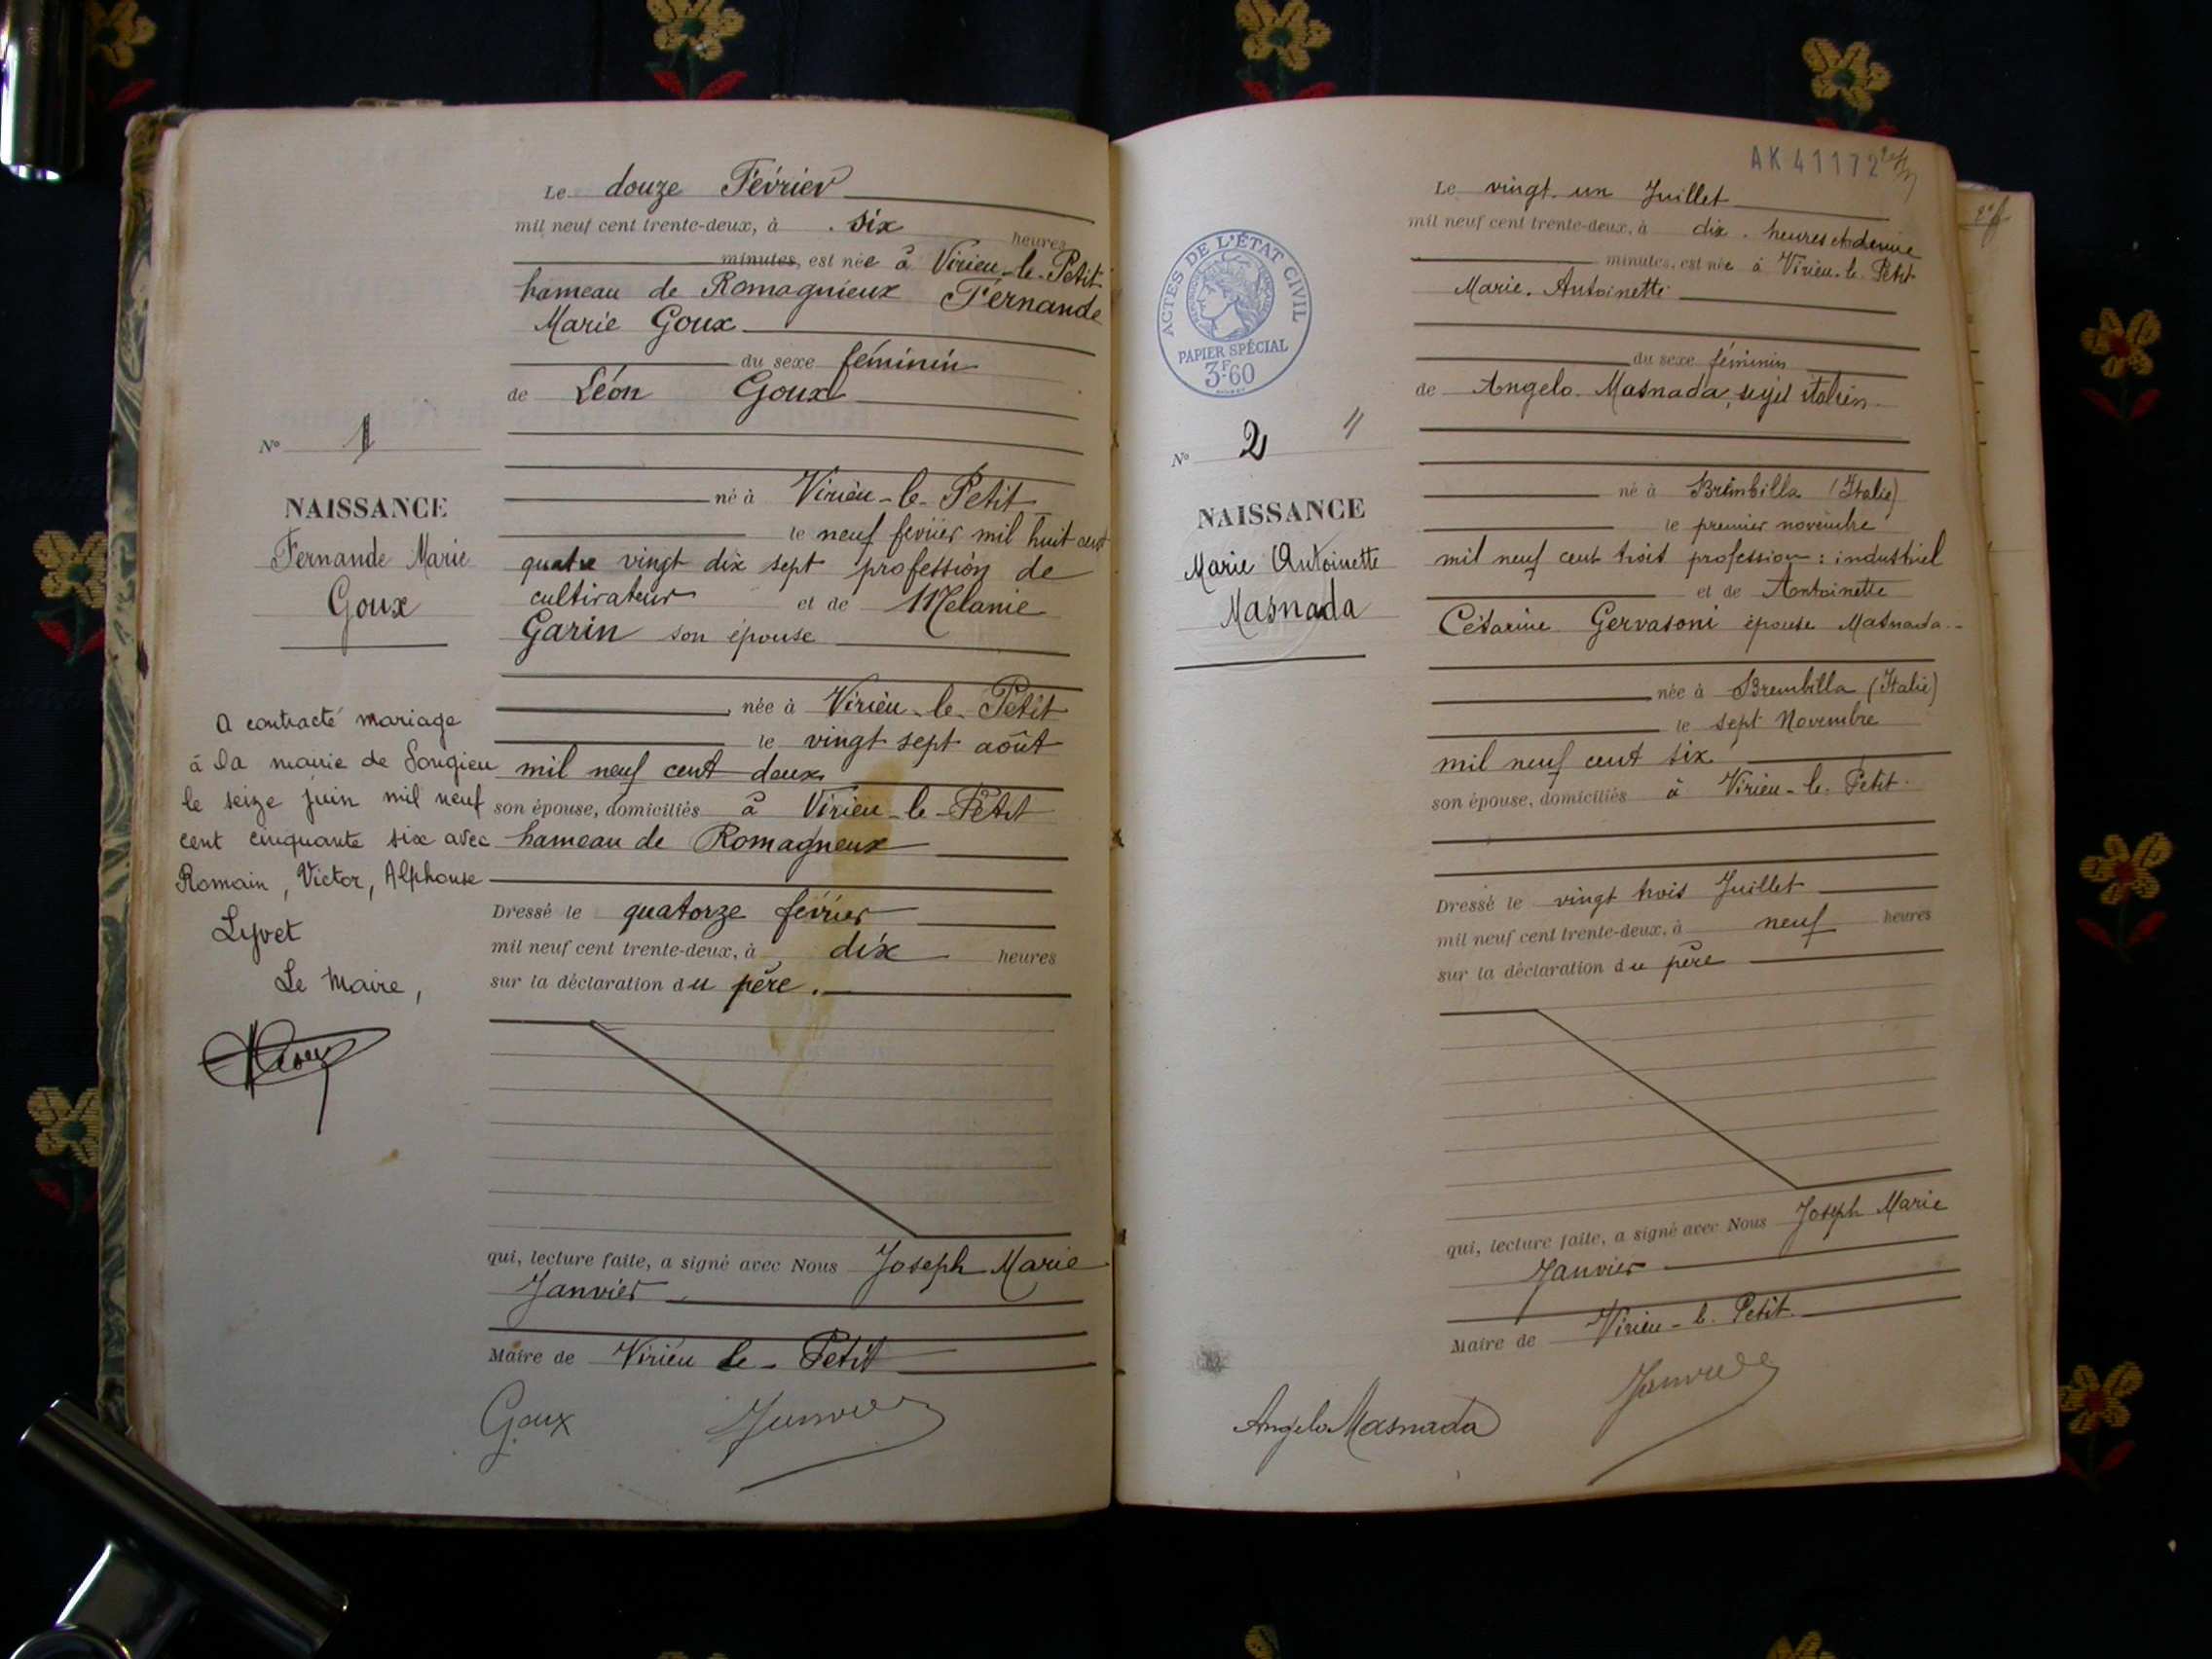 Le douze Février
mil neuf cent trente-deux, à six heures
minutes, est née à Virieu-le-Petit
hameau de Romagnieux Fernande
Marie Goux
du sexe féminin
de Léon Goux
né à Virieu-le-Petit
le neuf février mil huit cent
quatre vingt dix sept profession de
cultivateur et de Mélanie
Garin son épouse
née à Virieu-le-Petit
le vingt sept août
mil neuf cent deux
son épouse, domiciliés à Virieu-le-Petit
hameau de Romagneux
Dressé le quatorze février
mil neuf cent trente-deux, à dix heures
sur la déclaration du père.
qui, lecture faite, a signé avec Nous Joseph Marie
Janvier
Maire de Virieu le-Petit
Goux Janvier
No 1
NAISSANCE
Fernande Marie
Goux
a contracté mariage
à la mairie de Songieu
le seize juin mil neuf
cent cinquante six avec
Romain, Victor, Alphonse
Lyvet
Le Maire,
AK 41172
Le vingt-un Juillet
mil neuf cent trente-deux, à dix heures et demie
minutes, est née à Virieu-le-Petit
Marie-Antoinette
du sexe féminin
de Angelo Masnada, sujet italien
né à Brembilla (Italie)
le premier novembre
mil neuf cent trois profession : industriel
et de Antoinette
Césarine Gervasoni épouse Masnada
née à Brembilla (Italie)
le sept Novembre
mil neuf cent six
son épouse, domiciliés à Virieu-le-Petit
Dressé le vingt trois Juillet
mil neuf cent trente-deux, à neuf heures
sur la déclaration du père
qui, lecture faite, a signé avec Nous Joseph Marie
Janvier
Maire de Virieu-le-Petit
Angelo Masnada Janvier
ACTES DE L'ÉTAT CIVIL
PAPIER SPÉCIAL
3F60
No 2 "
NAISSANCE
Marie Antoinette
Masnada